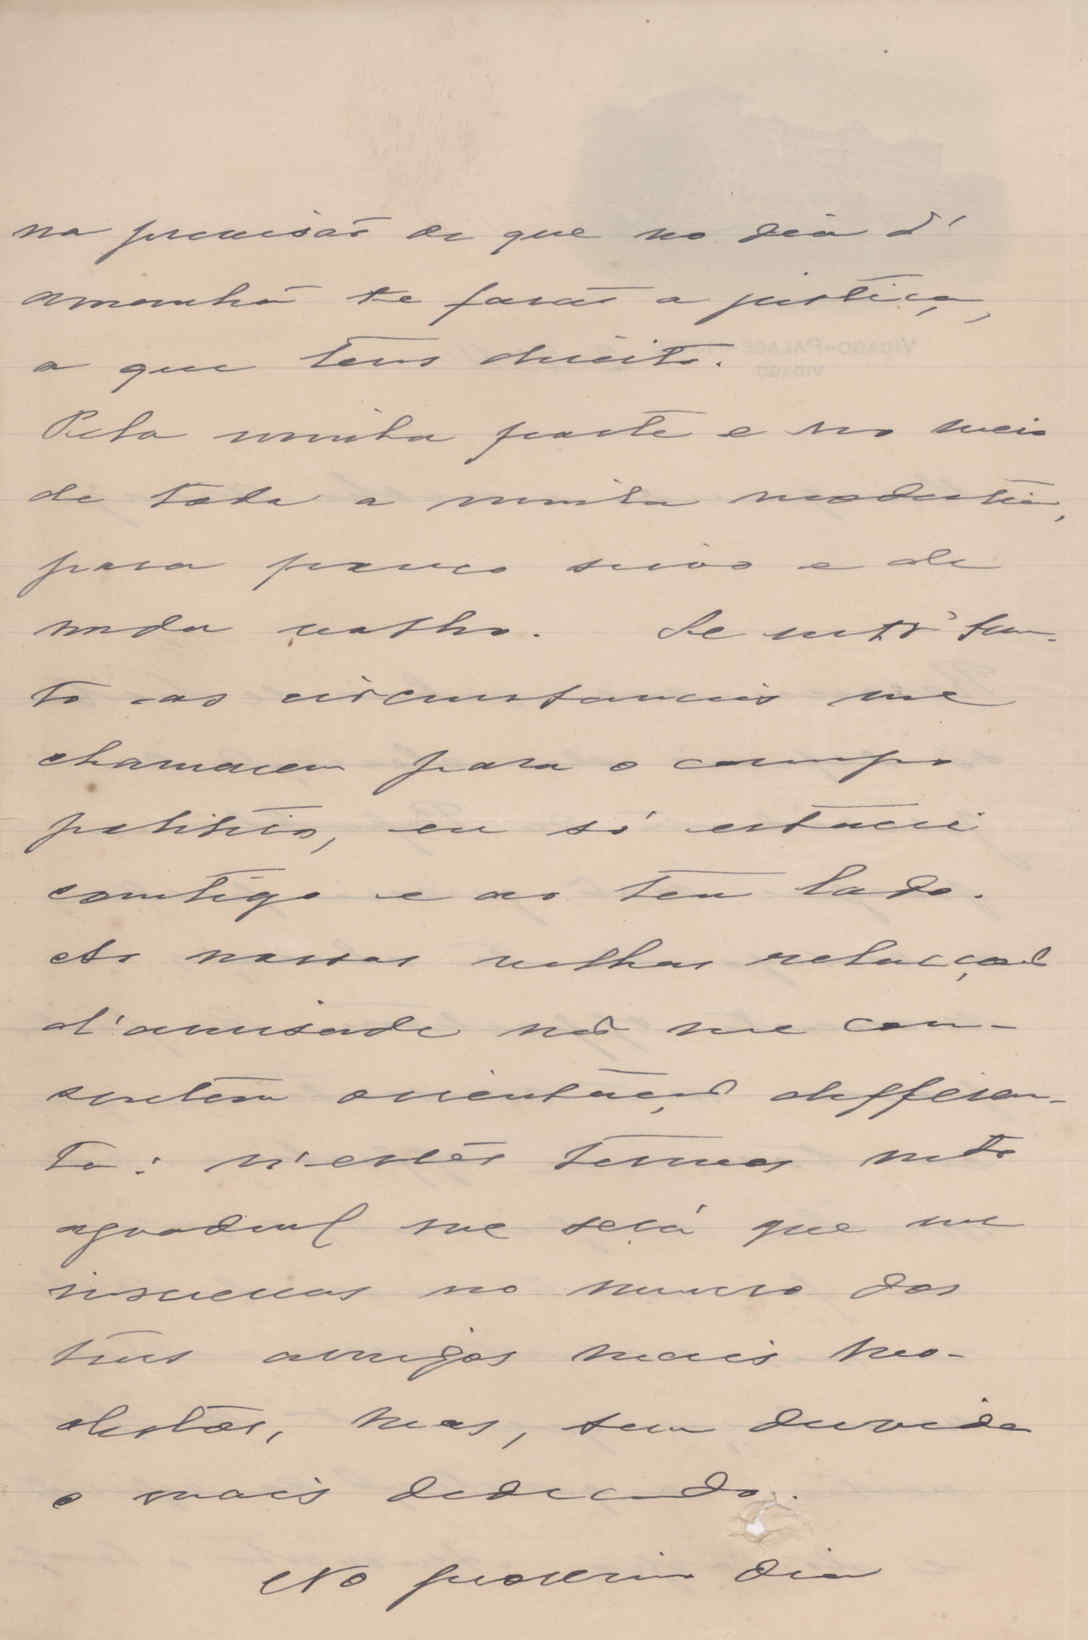 na previsão de que no dia d'
amanhã te farão a justiça,
a que tens direito.
Pela minha parte e no meio
de toda a minha modestia,
para pouco sirvo e de
nada valho. Se entretan-
to as circunstancias me
chamarem para o campo
politico, eu só estarei
comtigo e ao teu lado.
As nossas velhas relacções
d'amisade não me con-
sentem orientação differen-
te: n'estes termos mto
agradavel me será que me
inscrevas no numero dos
teus amigos mais mo-
destos, mas, sem duvida
o mais dedicado.
No proximo dia
VIDAGO-PALACE
VIDAGO